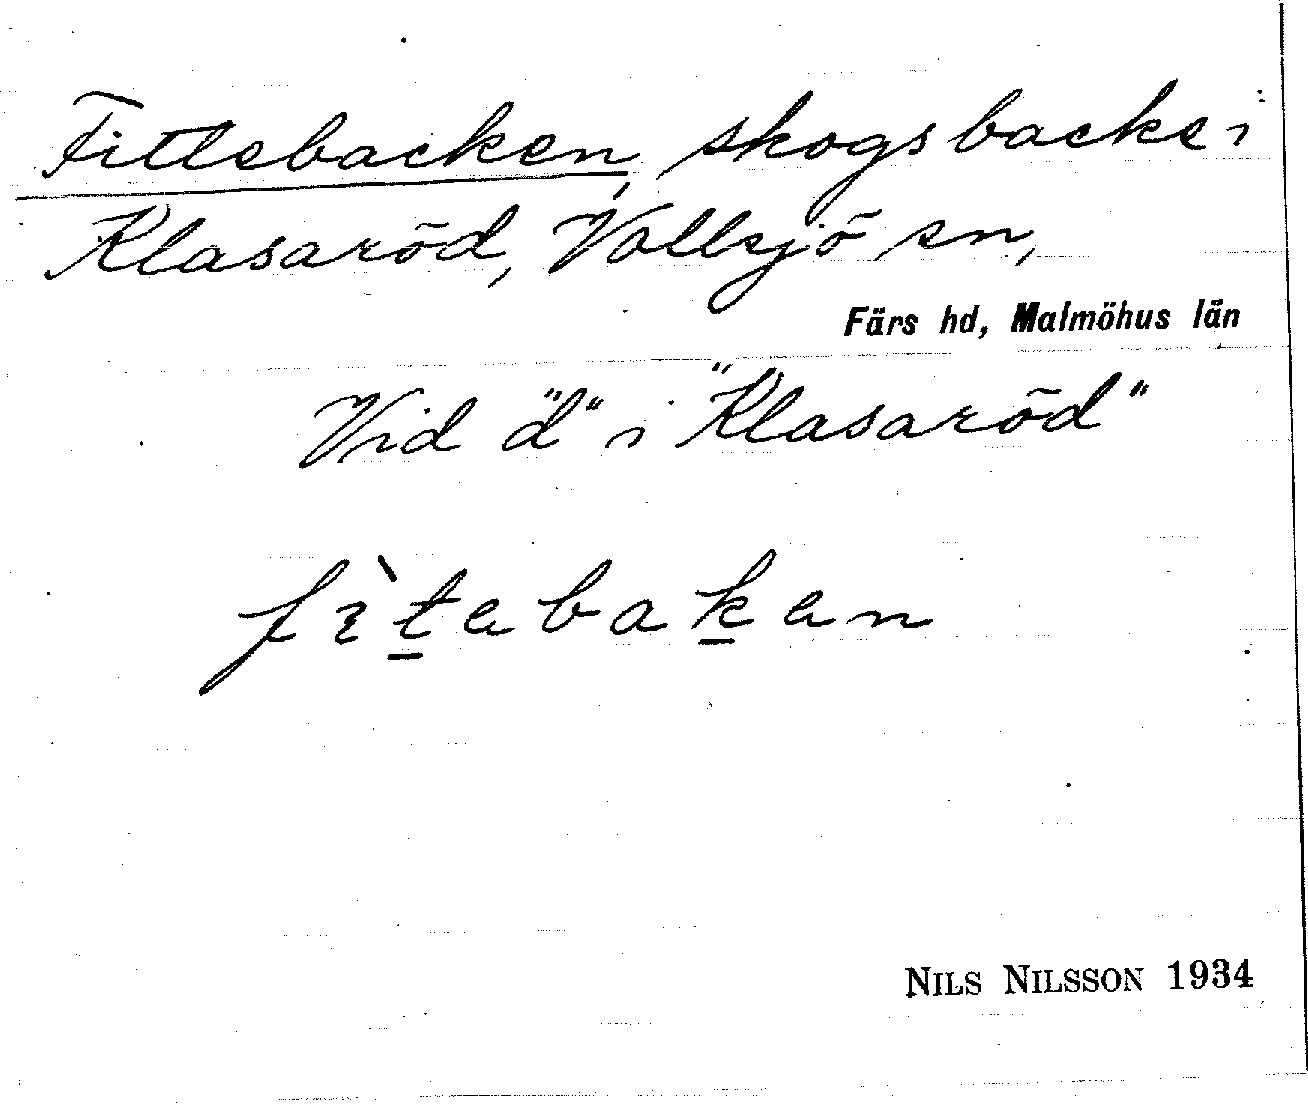 Fittebacken, skogsbacke i
Klasaröd, Vollsjö sn,
Färs hd, Malmöhus län
Vid "d" i "Klasaröd"
fìtebaken
NILS NILSSON 1934